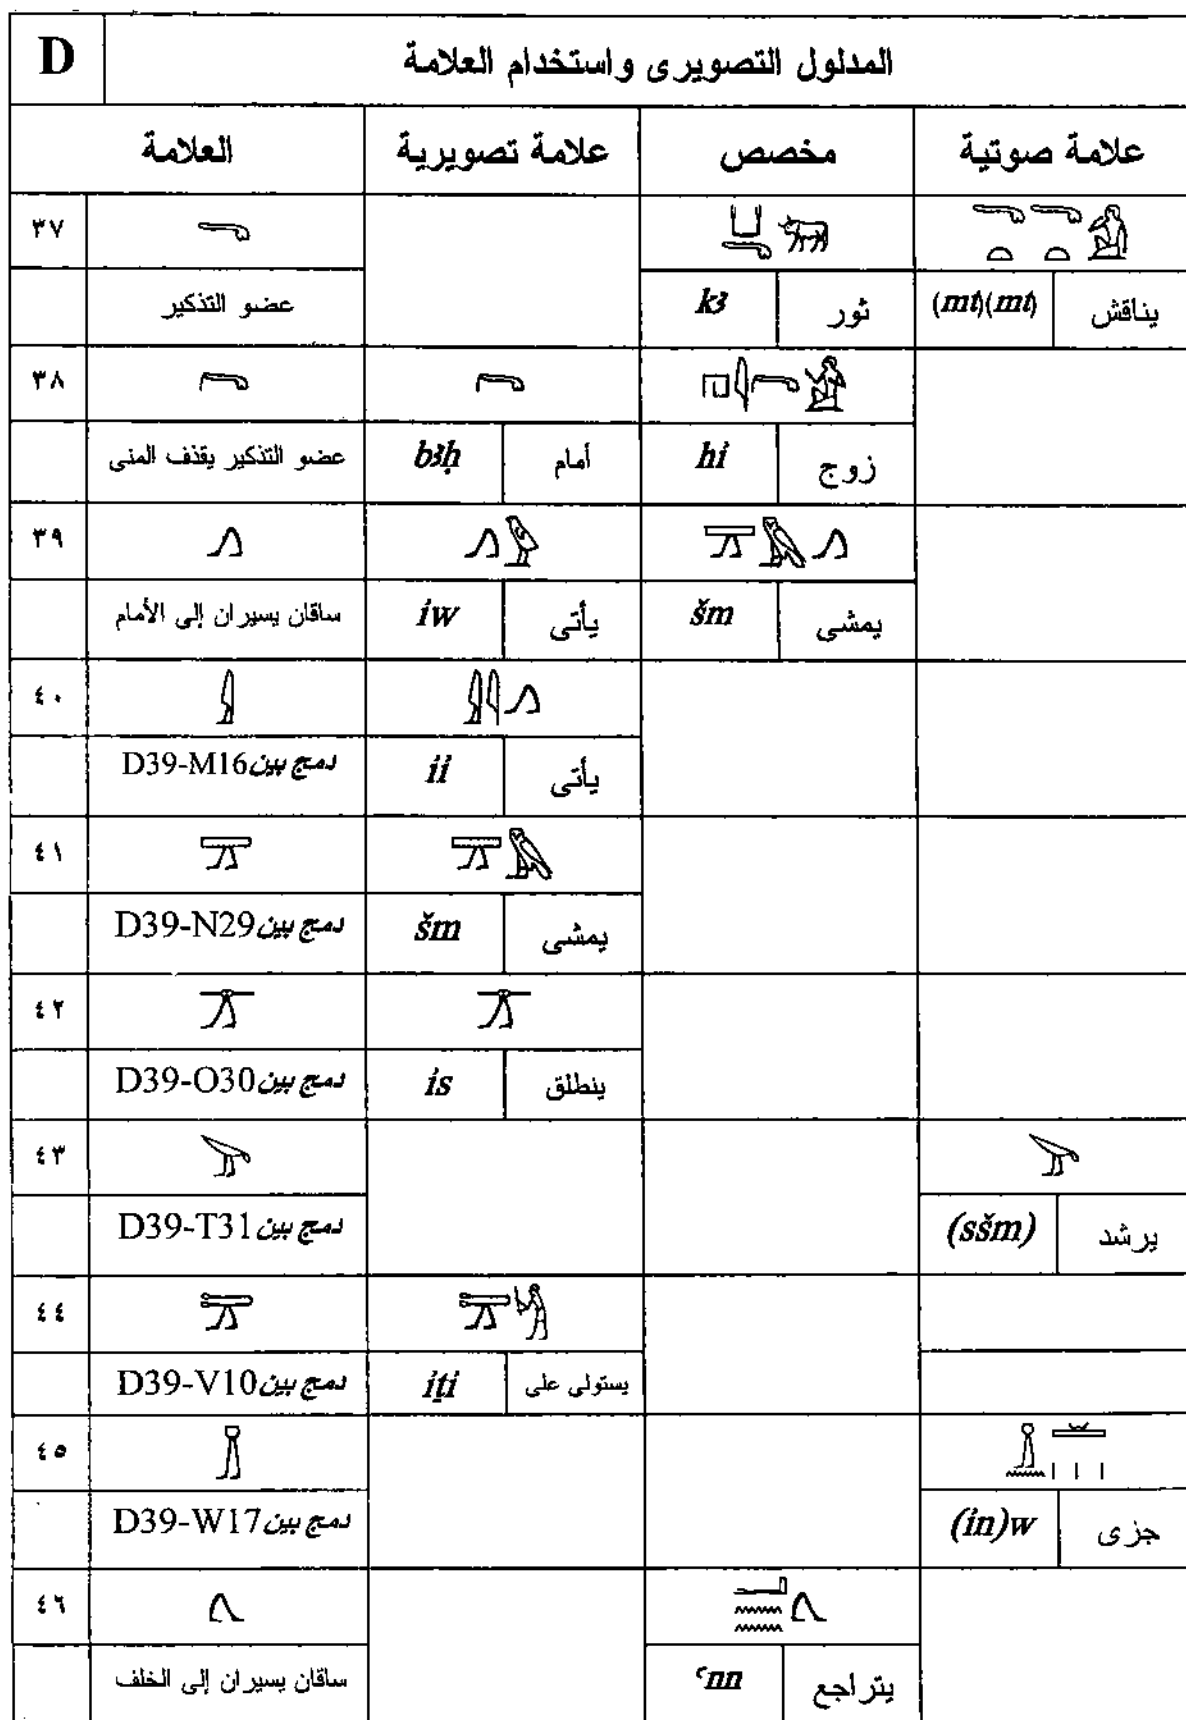 D المدلول التصويرى واستخدام العلامة
العلامة علامة تصويرية مخصص علامة صوتية
٣٧
عضو التذكير kꜣ ثور (mt)(mt) يناقش
٣٨
عضو التذكير يقذف المنى bꜣḥ أمام hỉ زوج
٣٩
ساقان يسيران إلى الأمام ỉw يأتى šm يمشى
٤٠
دمج بين D39-M16 ỉỉ يأتى
٤١
دمج بين D39-N29 šm يمشى
٤٢
دمج بين D39-O30 ỉs ينطلق
٤٣
دمج بين D39-T31 (sšm) يرشد
٤٤
دمج بين D39-V10 ỉṯỉ يستولى على
٤٥
دمج بين D39-W17 (ỉn)w جزى
٤٦
ساقان يسيران إلى الخلف ꜥnn يتراجع